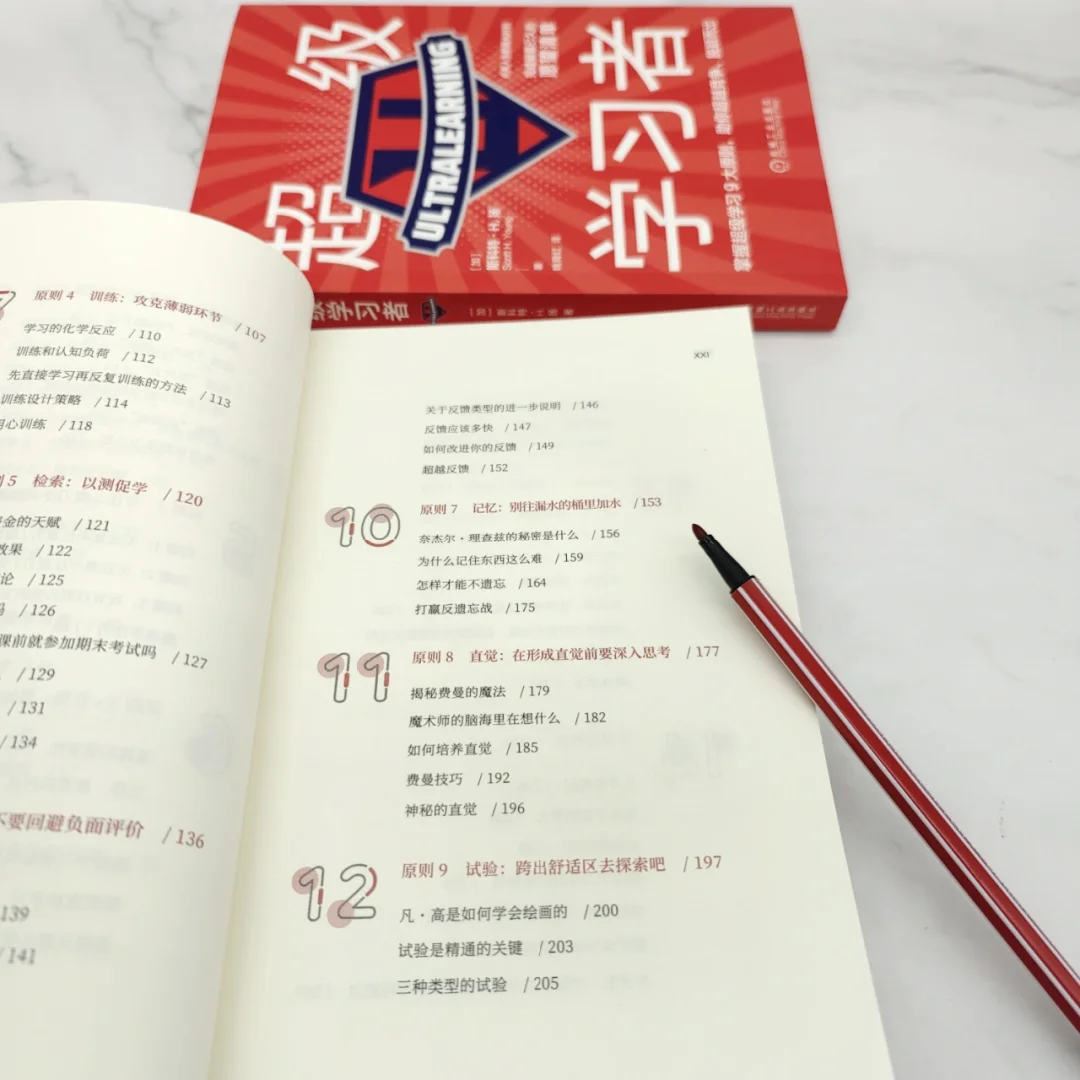 超级
学习者
ULTRALEARNING
[加]
斯科特·H.扬
Scott H. Young
著
姚育红 译
掌握超级学习9大原则，助你超越竞争、脱颖而出
机械工业出版社
级学习者
[加] 斯科特·H.扬 著
原则 4 训练：攻克薄弱环节 / 107
学习的化学反应 / 110
训练和认知负荷 / 112
先直接学习再反复训练的方法 / 113
训练设计策略 / 114
用心训练 / 118
5 检索：以测促学 / 120
金的天赋 / 121
效果 / 122
论 / 125
吗 / 126
课前就参加期末考试吗 / 127
/ 129
/ 131
/ 134
不要回避负面评价 / 136
139
/ 141
XXI
关于反馈类型的进一步说明 / 146
反馈应该多快 / 147
如何改进你的反馈 / 149
超越反馈 / 152
10
原则 7 记忆：别往漏水的桶里加水 / 153
奈杰尔·理查兹的秘密是什么 / 156
为什么记住东西这么难 / 159
怎样才能不遗忘 / 164
打赢反遗忘战 / 175
11
原则 8 直觉：在形成直觉前要深入思考 / 177
揭秘费曼的魔法 / 179
魔术师的脑海里在想什么 / 182
如何培养直觉 / 185
费曼技巧 / 192
神秘的直觉 / 196
12
原则 9 试验：跨出舒适区去探索吧 / 197
凡·高是如何学会绘画的 / 200
试验是精通的关键 / 203
三种类型的试验 / 205